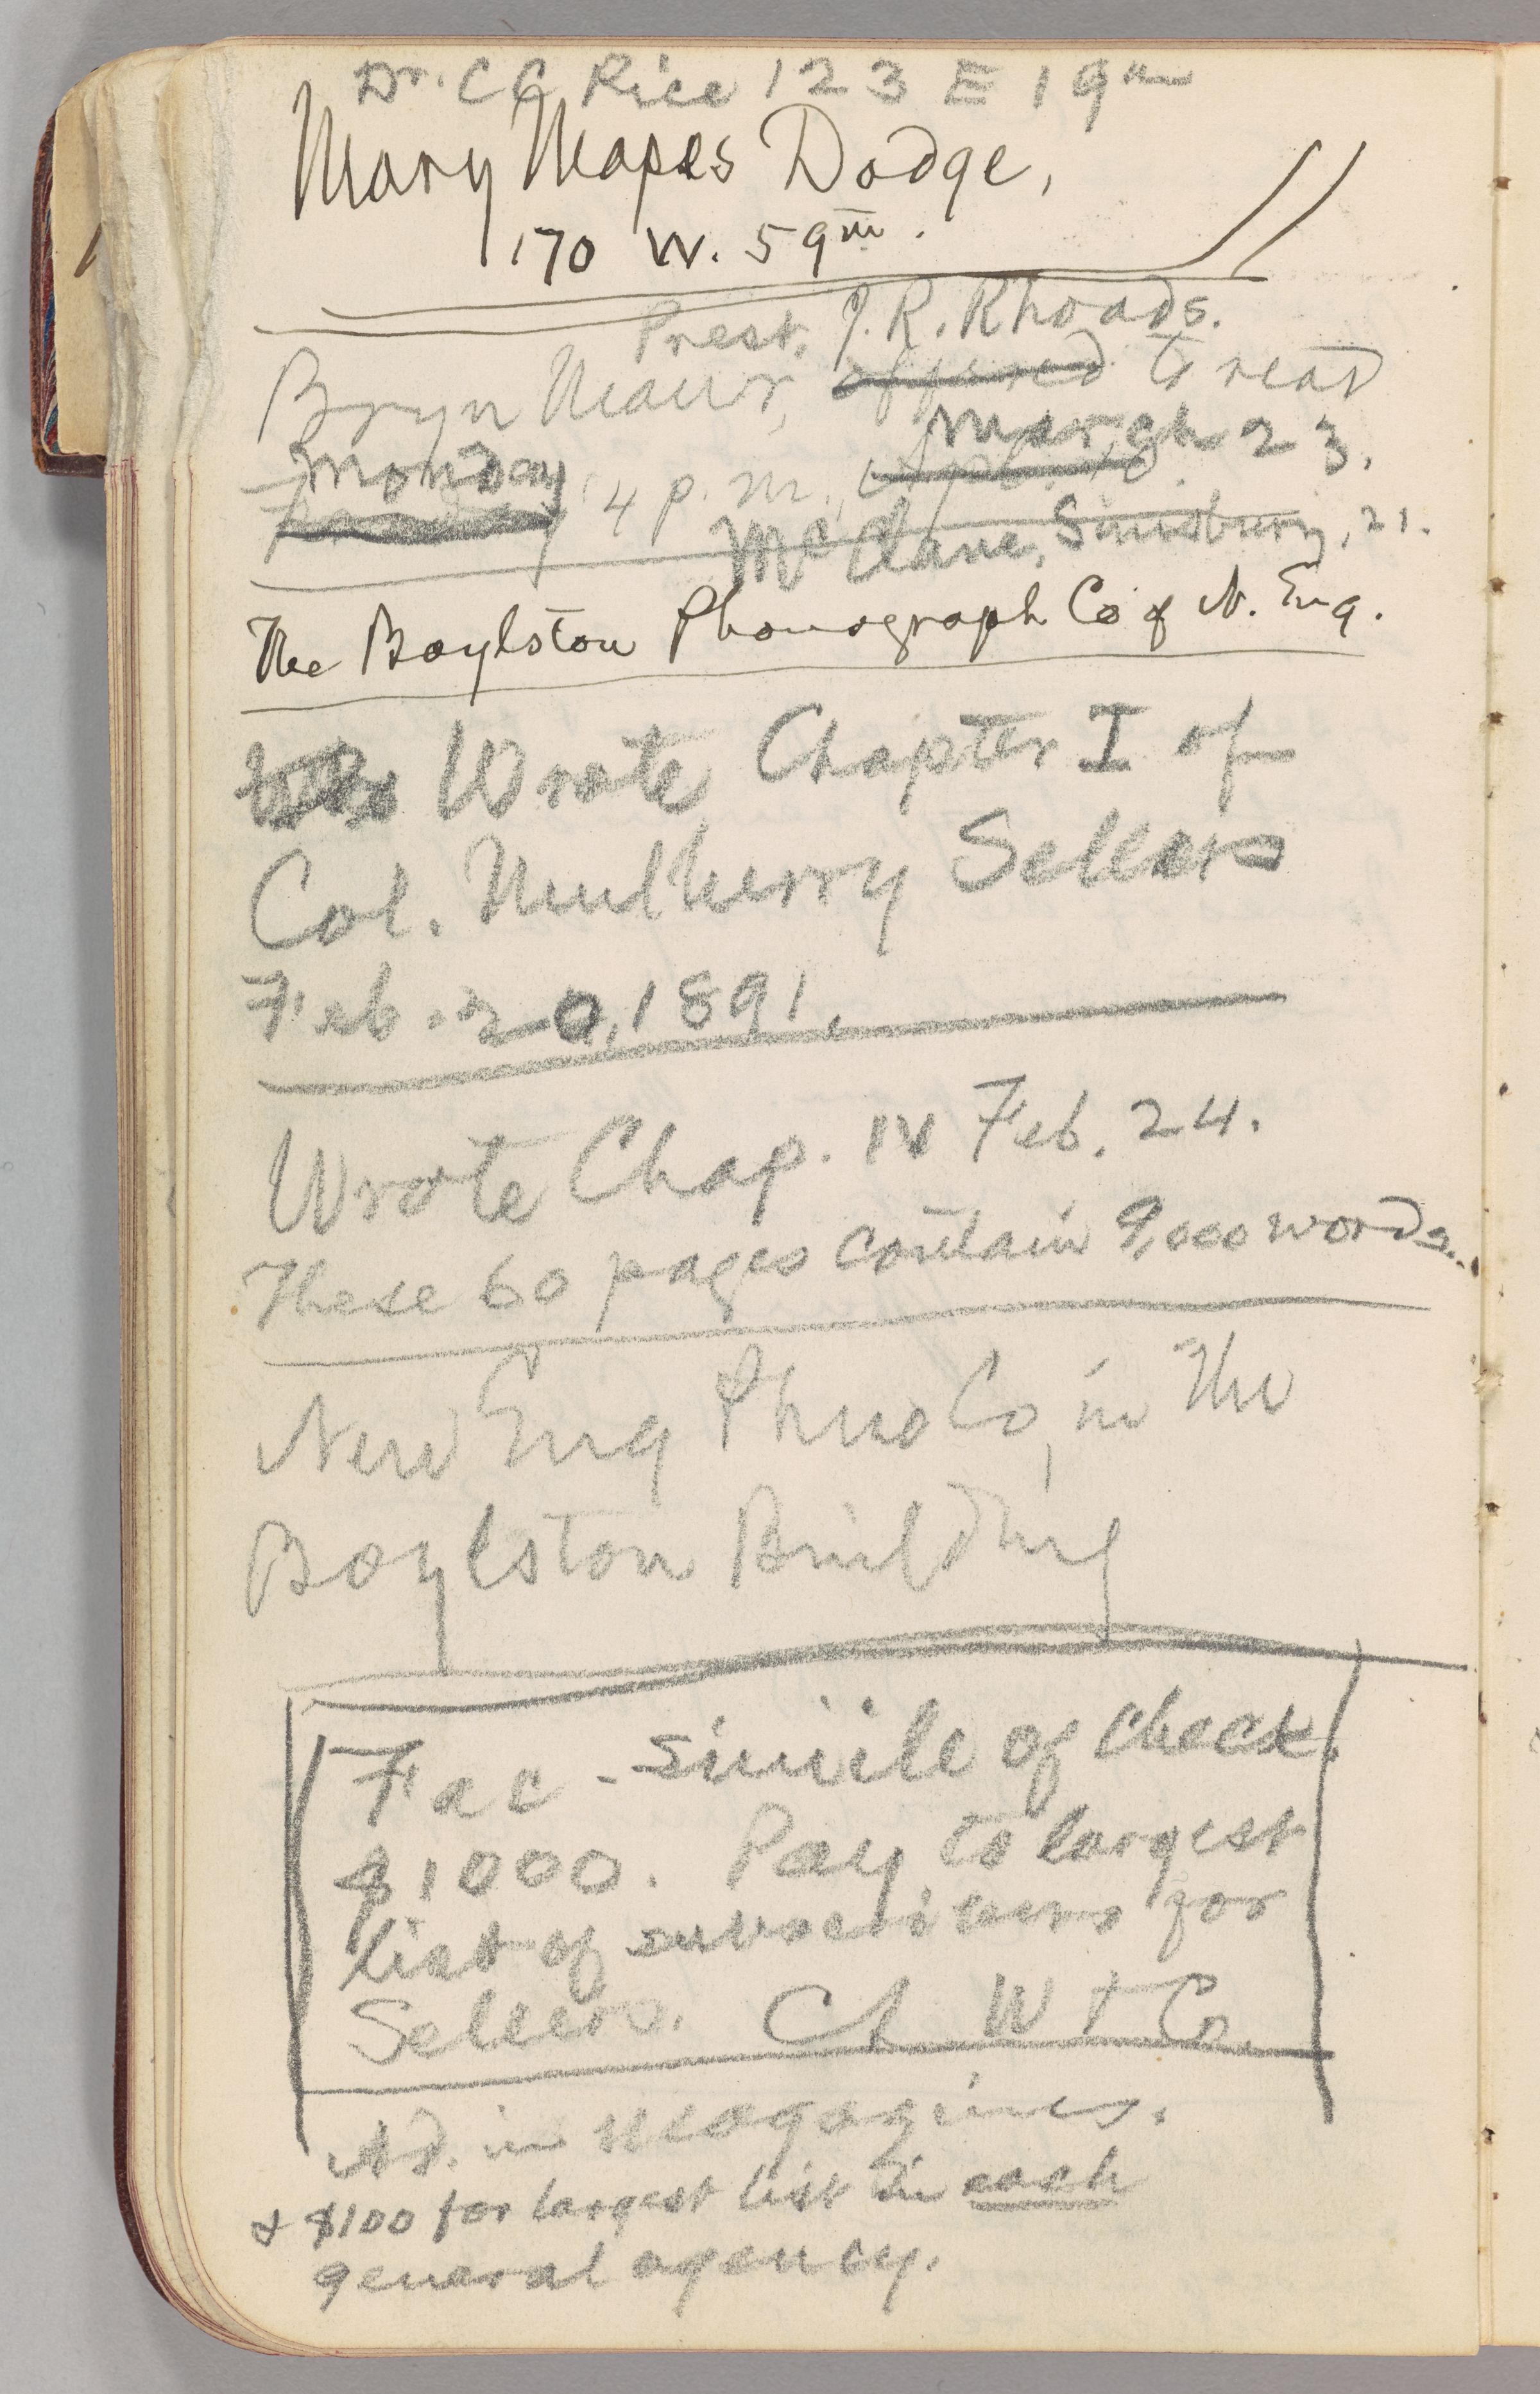 Dr. C C Rice 123 E 19th
Mary Mapes Dodge,
170 W. 59th.
Prest. J. R. Rhoads.
Bryn Mawr, offered to read
March 23.
Monday 4 p.m.,
McClane, Simsbury, 21.
The Boylston Phonograph Co of N. Eng.
Wrote Chapter I of
Col. Mulberry Sellers
Feb. 20, 1891.
Wrote Chap. IV Feb. 24.
These 60 pages contain 9,000 words.
New Eng Phno Co, in The
Boylston Building
Fac-simile of check.
$1000. Pay to largest
list of subscribers for
Sellers. Ch W & Co.
Ad. in magazines.
& $100 for largest list in each
general agency.